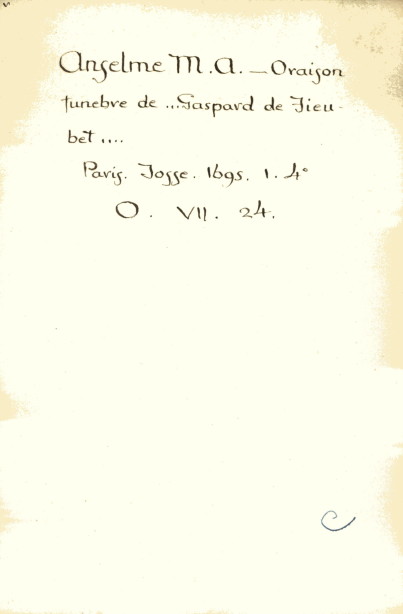 Anselme M.A. — Oraison
funebre de ... Gaspard de Fieu-
bet ....
Paris. Josse. 1695. 1. 4°
O. VII. 24.
C